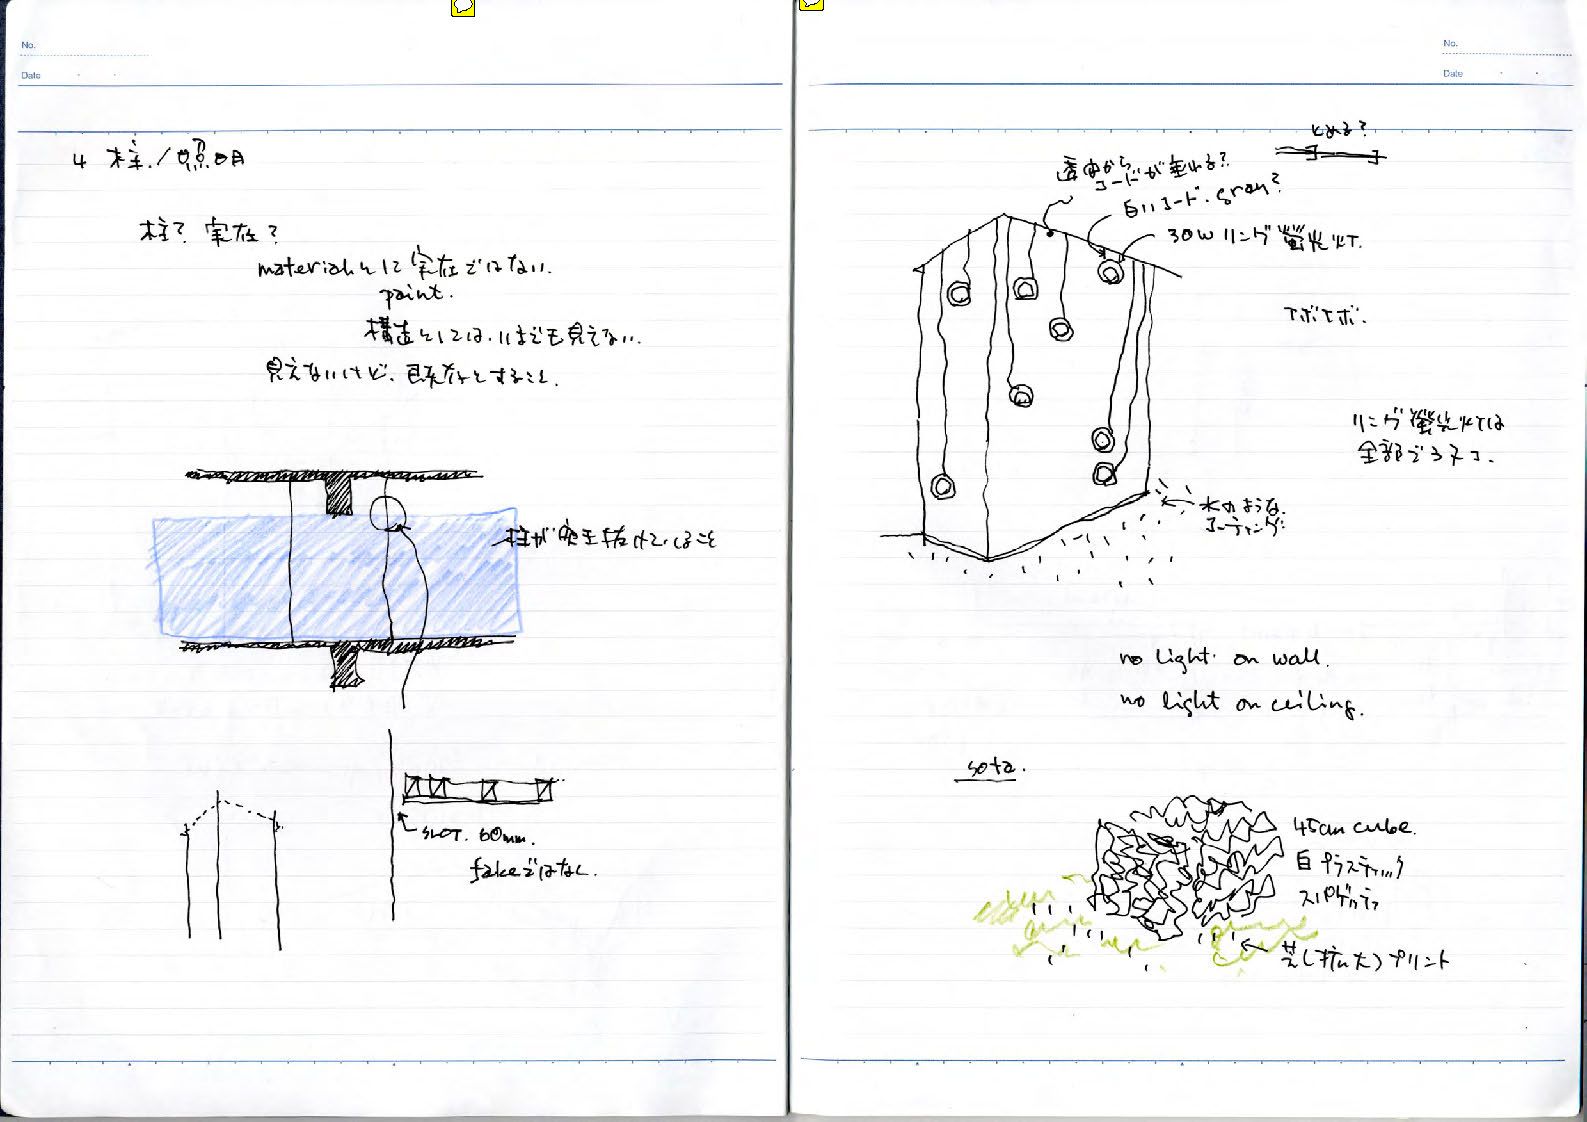 No.
Date
4 柱/照明
柱? 実在?
materialとして実在ではない.
paint.
構造としては、いまでも見えない.
見えないけど、既存とすること.
柱が突き抜けていること
SLOT. 60mm.
fakeではなし.
No.
Date
とめる?
コードが垂れる?
白いコード. gray?
30W リング蛍光灯.
リング蛍光灯は
全部で
水のような.
コーティング.
no light on wall.
no light on ceiling.
sofa.
45cm cube.
白プラスティック
スパゲッティ
プリント